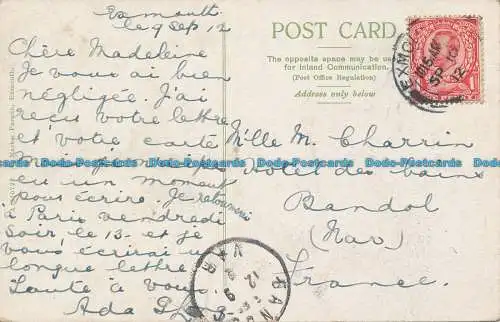 Exmouth
le 9 Sep 12
Chère Madeleine
Je vous ai bien
négligée. J'ai
reçu votre lettre
et votre carte
eu un moment
pour écrire. Je retournerai
à Paris vendredi
soir, le 13 - et je
vous écrirai une
longue lettre.
à vous
Ada
POST CARD.
The opposite space may be used
for Inland Communication.
(Post Office Regulation)
Address only below
M'lle M. Charrin
Hotel des bains
Bandol
(Var)
France.
EXMO
SP 10
12
VAR
BAN
12
9
Dodo-Postcards